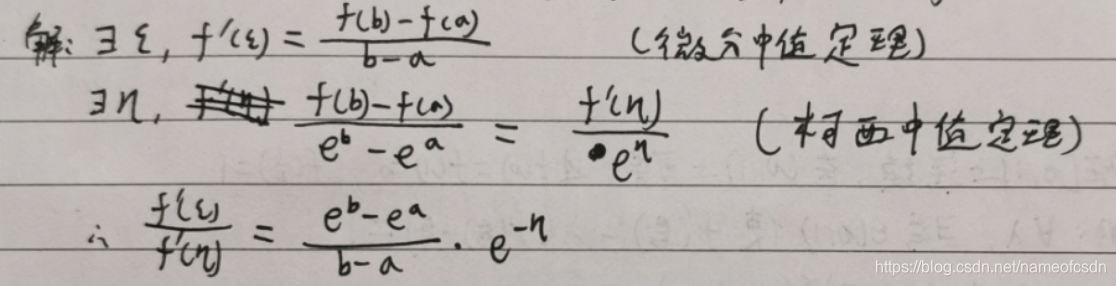 解: ∃ξ, f'(ξ) = \frac{f(b)-f(a)}{b-a} (微分中值定理)
∃η, \frac{f(b)-f(a)}{e^b-e^a} = \frac{f'(η)}{e^η} (柯西中值定理)
∴ \frac{f'(ξ)}{f'(η)} = \frac{e^b-e^a}{b-a} · e^{-η}
https://blog.csdn.net/nameofcsdn